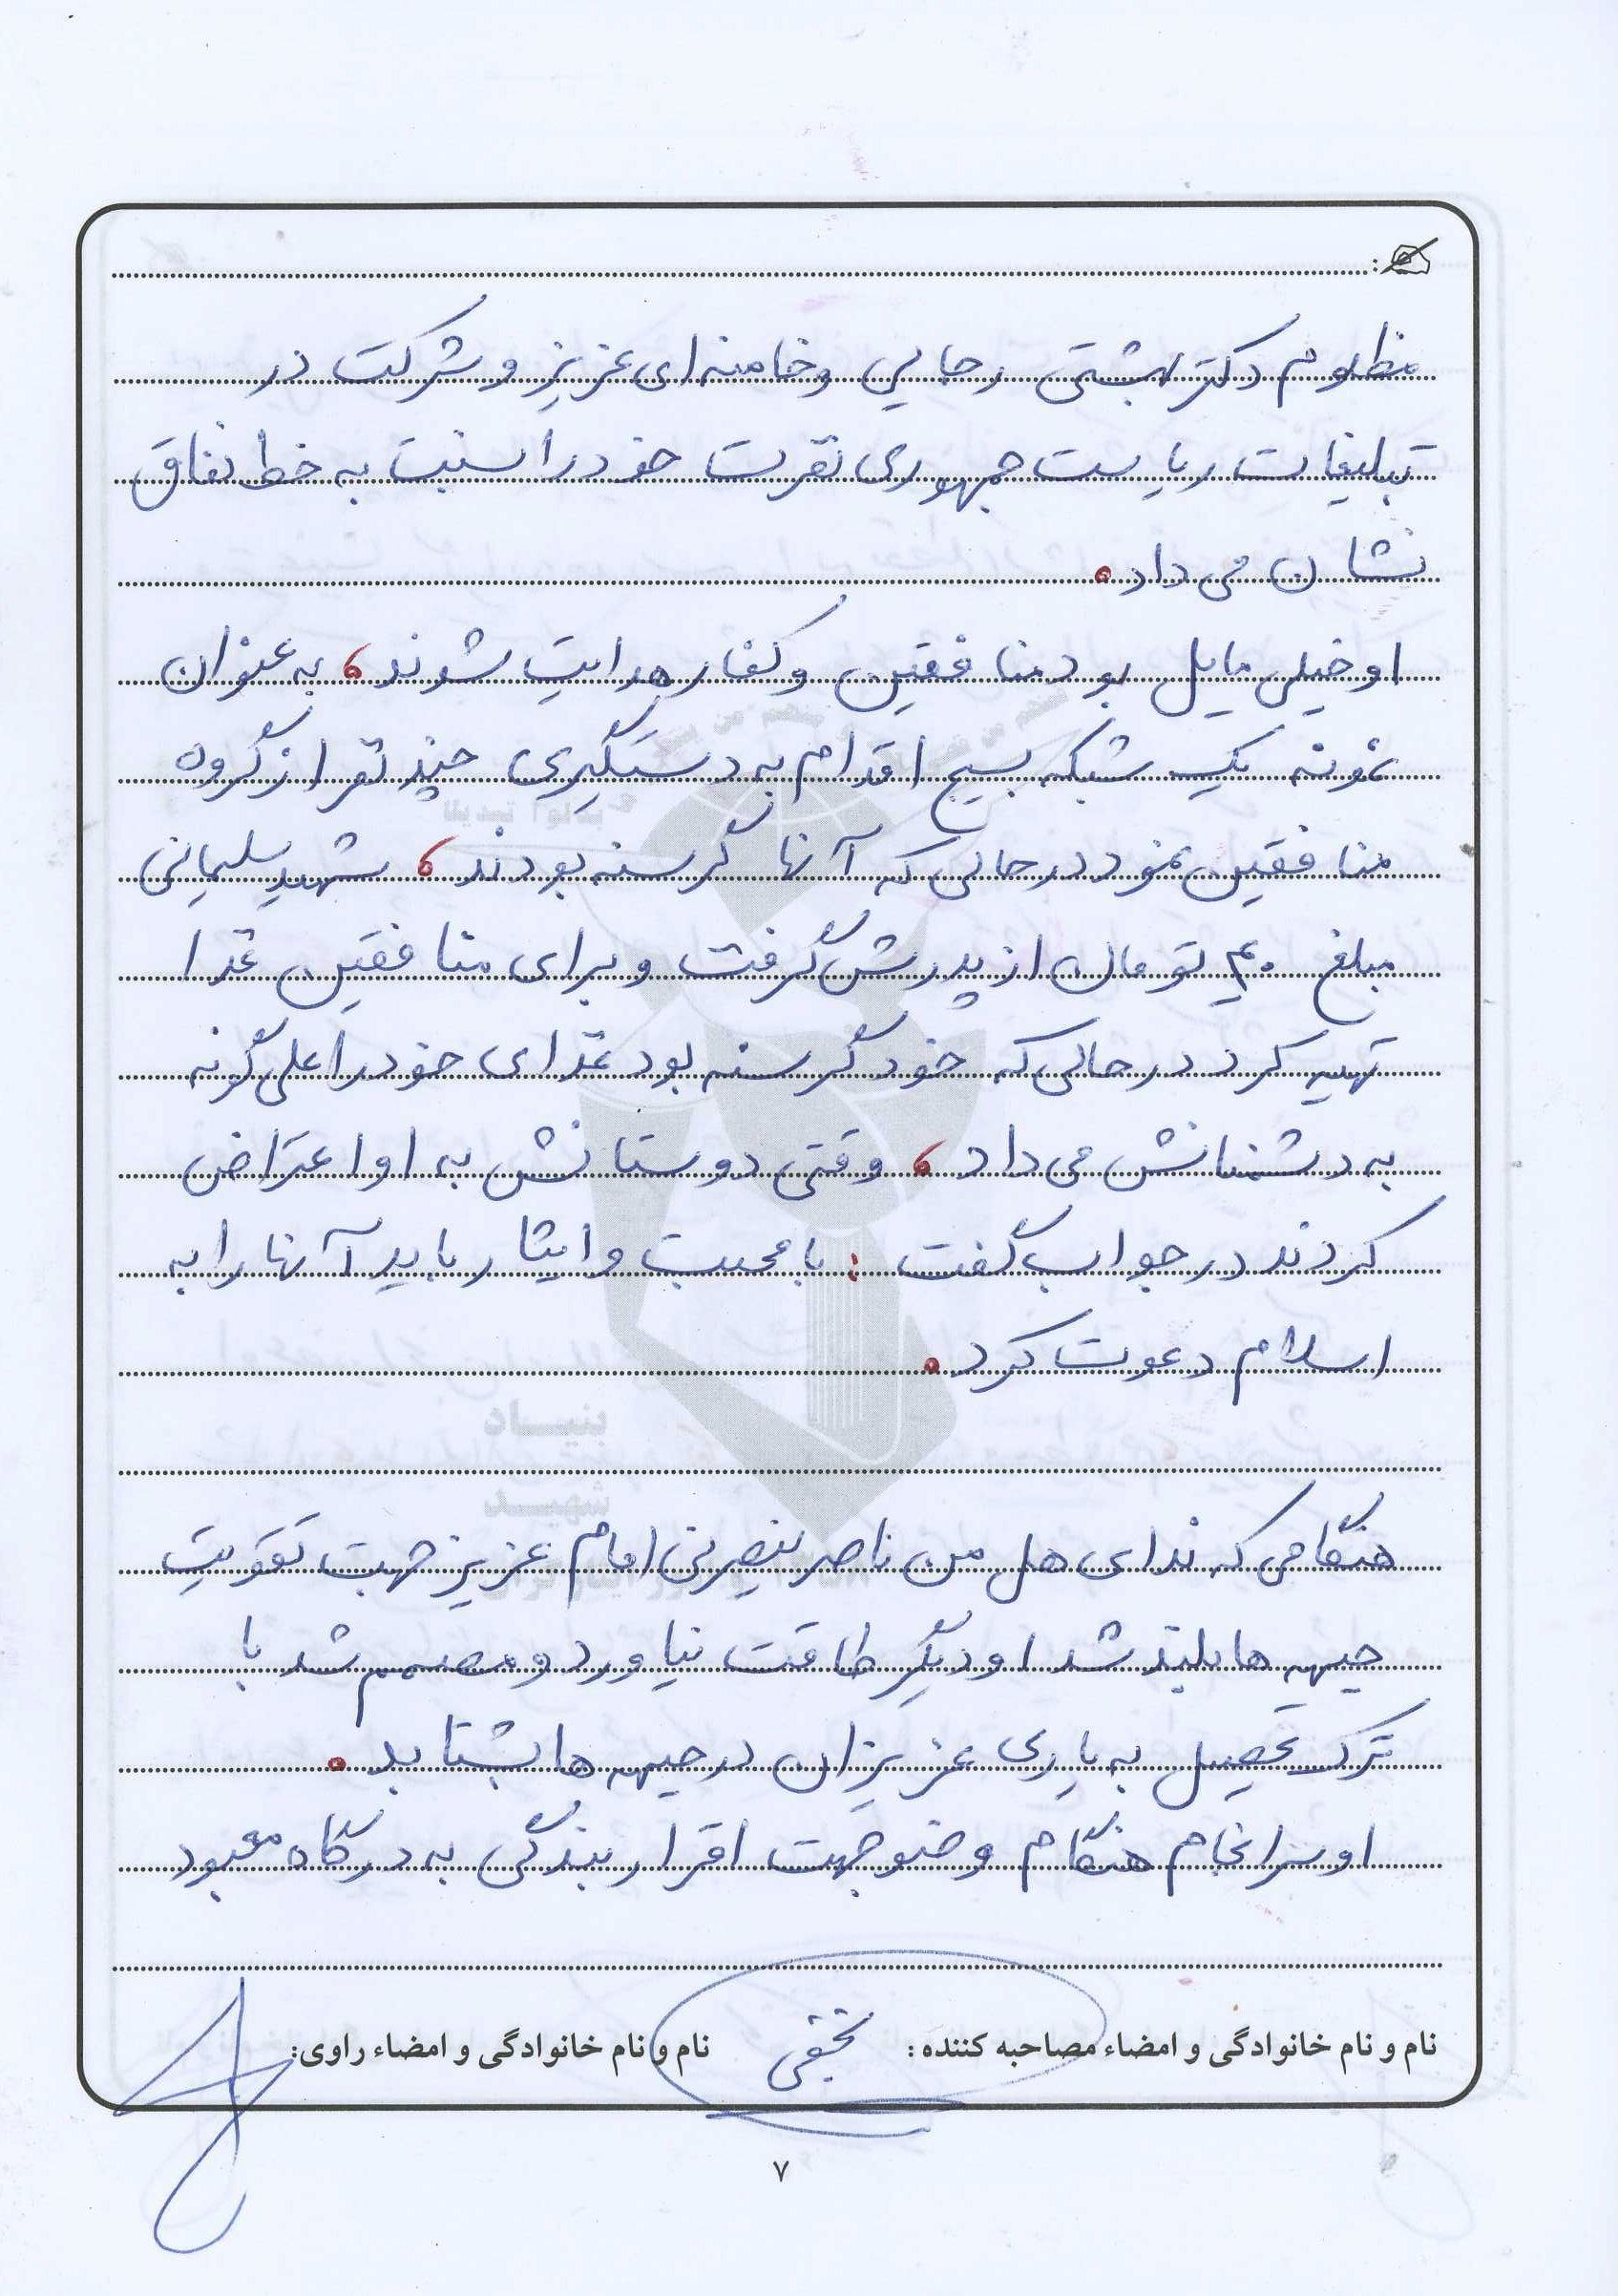 مظلوم دکتر بهشتی رجایی و خامنه‌ای عزیز و شرکت در
تبلیغات ریاست جمهوری نفرت خود را نسبت به خط نفاق
نشان می‌داد.
او خیلی مایل بود منافقین و کفار هدایت شوند، به عنوان
نمونه یک شب که بسیج اقدام به دستگیری چند نفر از گروه
منافقین نمود در حالی که آنها گرسنه بودند، شهید سلیمانی
مبلغ ۴۰ تومان از پدرش گرفت و برای منافقین غذا
تهیه کرد در حالی که خود گرسنه بود غذای خود را علی گونه
به دشمنانش می‌داد، وقتی دوستانش به او اعتراض
کردند در جواب گفت: با محبت و ایثار باید آنها را به
اسلام دعوت کرد.
بنیاد
شهید
هنگامی که ندای هل من ناصر ینصرنی امام عزیز جهت تقویت
جبهه ها بلند شد او دیگر طاقت نیاورد و مصمم شد با
ترک تحصیل به یاری عزیزان در جبهه ها بشتابد.
او سرانجام هنگام وضو جهت اقرار بندگی به درگاه معبود
نام و نام خانوادگی و امضاء مصاحبه کننده: نام و نام خانوادگی و امضاء راوی:
۷